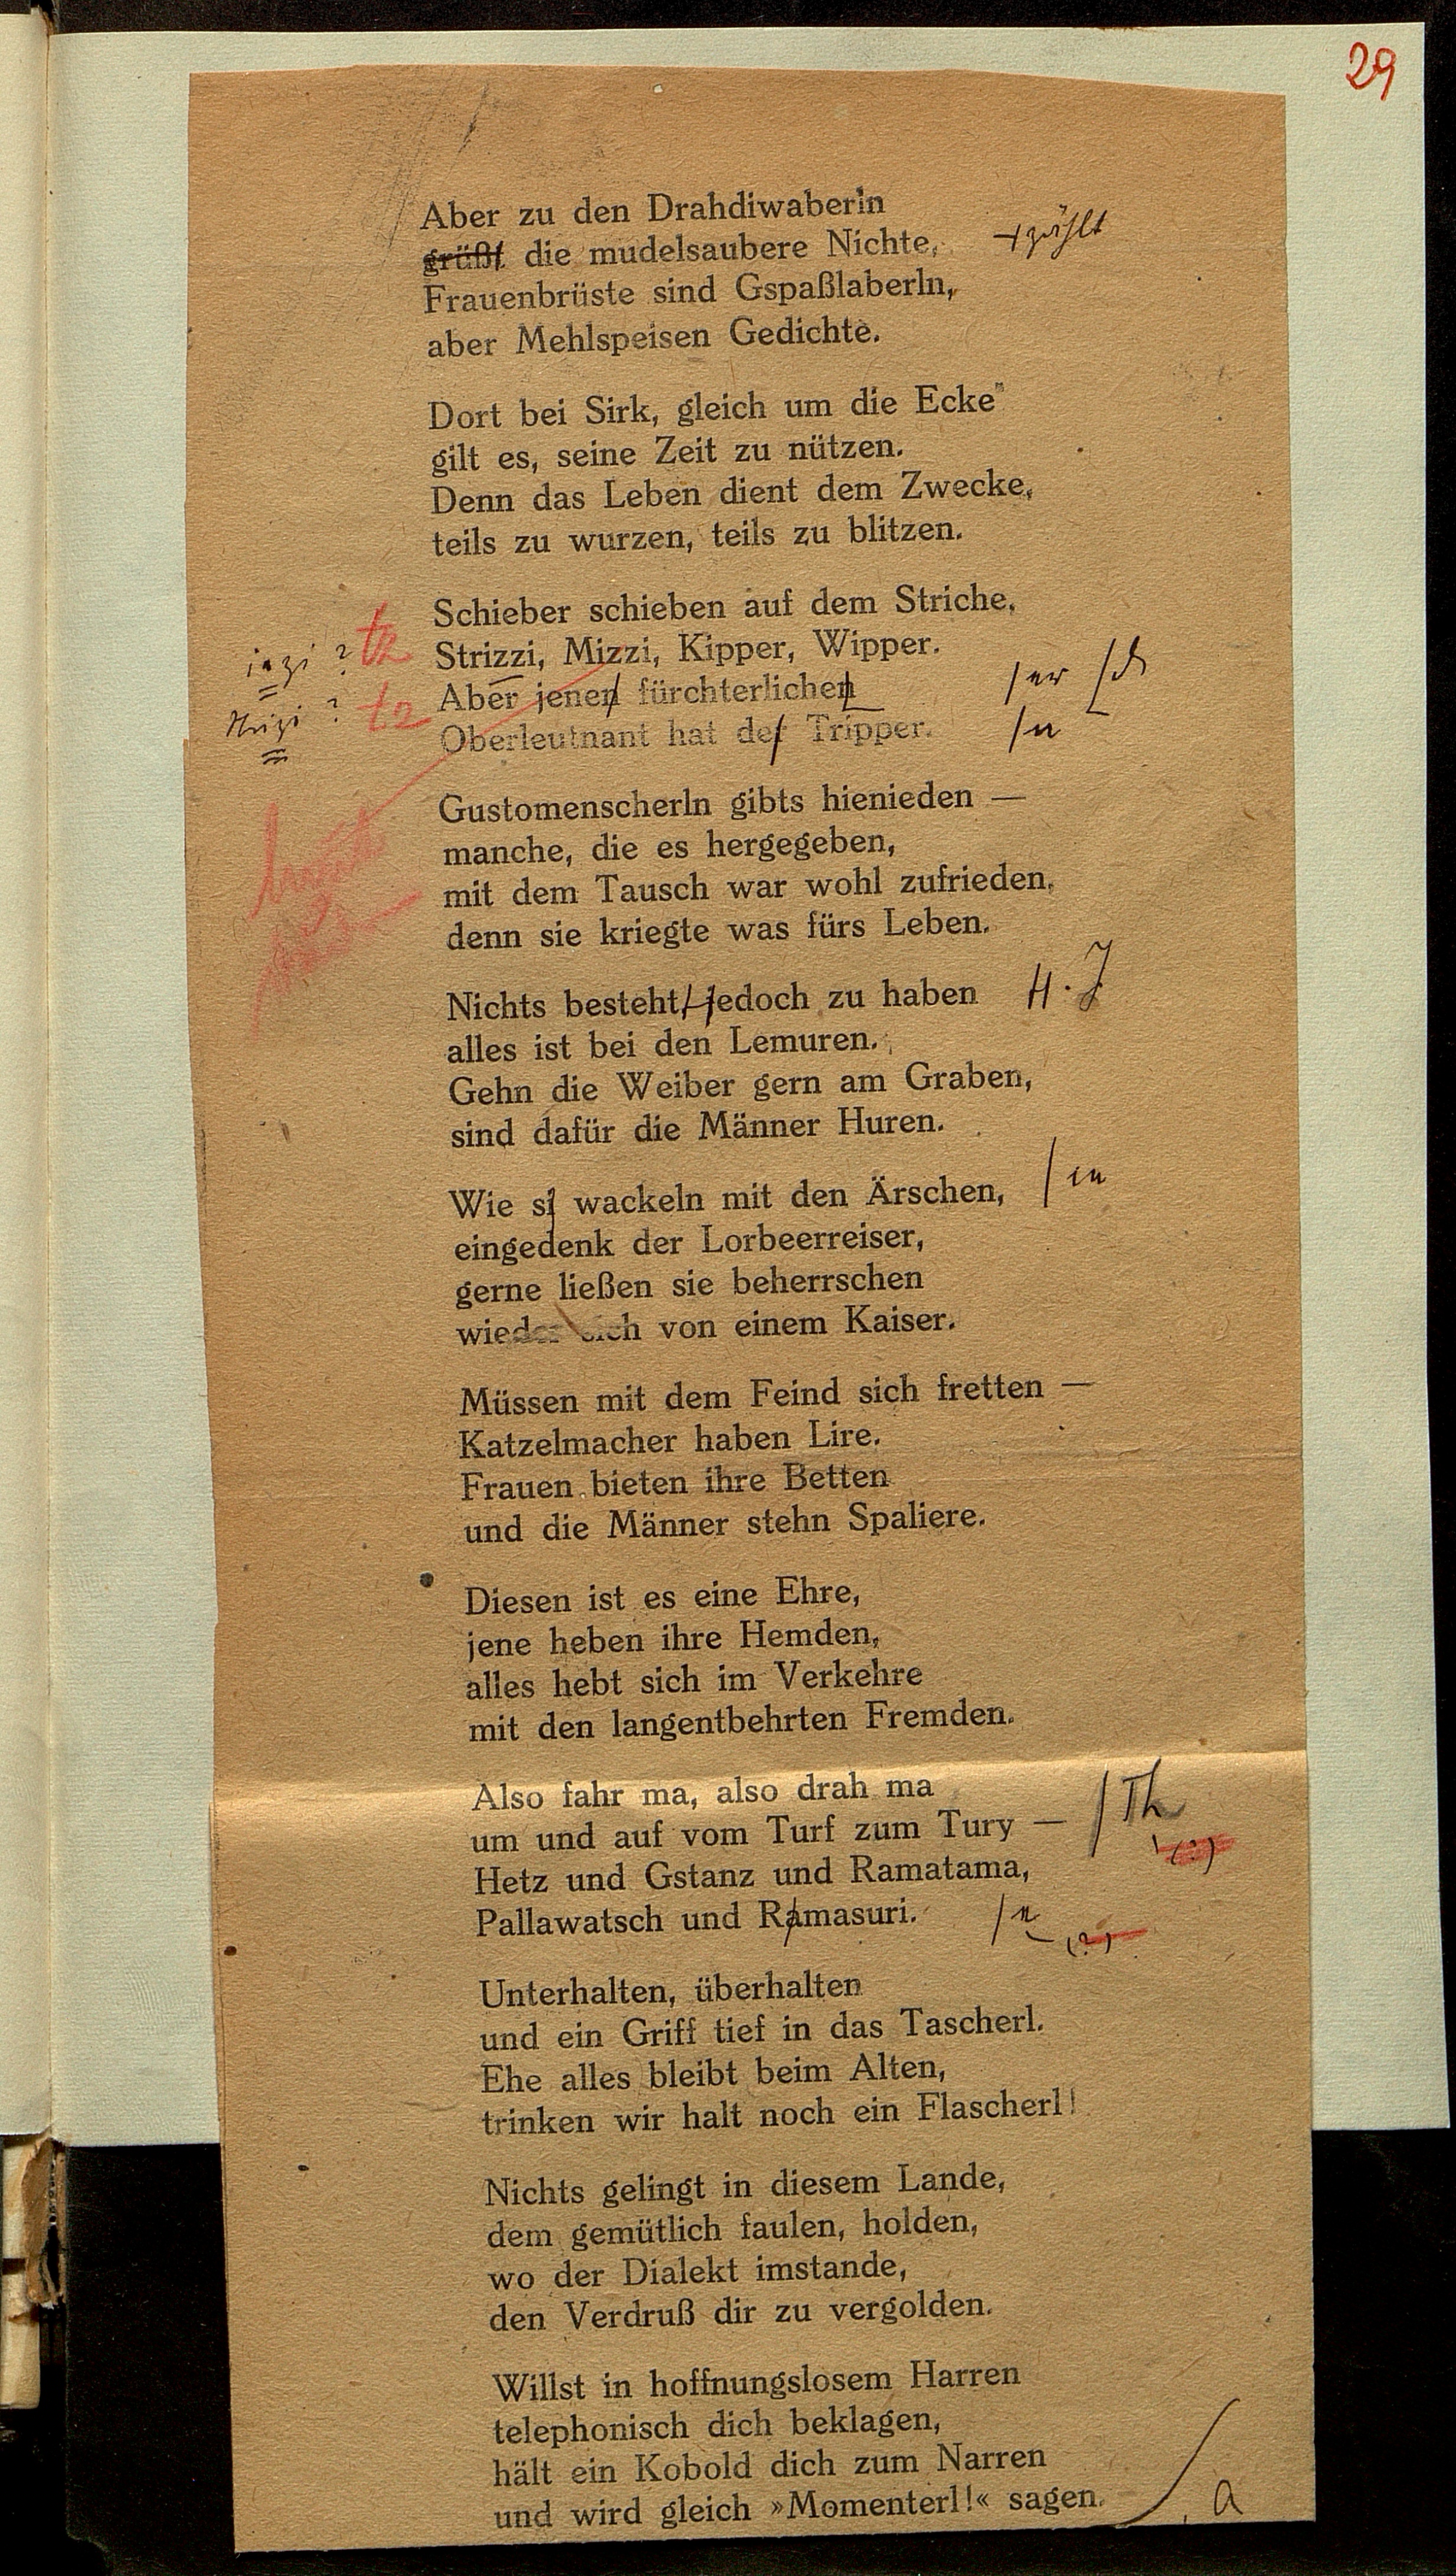 29
Aber zu den Drahdiwaberln
grüßt die mudelsaubere Nichte, zählt
Frauenbrüste sind Gspaßlaberln,
aber Mehlspeisen Gedichte.
Dort bei Sirk, gleich um die Ecke
gilt es, seine Zeit zu nützen.
Denn das Leben dient dem Zwecke,
teils zu wurzen, teils zu blitzen.
Schieber schieben auf dem Striche,
Strizzi, Mizzi, Kipper, Wipper.
Aber jenen fürchterlichen er
Oberleutnant hat der Tripper. n
Gustomenscherln gibts hienieden —
manche, die es hergegeben,
mit dem Tausch war wohl zufrieden,
denn sie kriegte was fürs Leben.
Nichts besteht, jedoch zu haben . J
alles ist bei den Lemuren.
Gehn die Weiber gern am Graben,
sind dafür die Männer Huren.
Wie si wackeln mit den Ärschen,
eingedenk der Lorbeerreiser,
gerne ließen sie beherrschen
wieder sich von einem Kaiser.
Müssen mit dem Feind sich fretten —
Katzelmacher haben Lire.
Frauen bieten ihre Betten
und die Männer stehn Spaliere.
Diesen ist es eine Ehre,
jene heben ihre Hemden,
alles hebt sich im Verkehre
mit den langentbehrten Fremden.
Also fahr ma, also drah ma
um und auf vom Turf zum Tury — Th
(?)
Hetz und Gstanz und Ramatama,
Pallawatsch und Ramasuri.
(?)
Unterhalten, überhalten
und ein Griff tief in das Tascherl.
Ehe alles bleibt beim Alten,
trinken wir halt noch ein Flascherl!
Nichts gelingt in diesem Lande,
dem gemütlich faulen, holden,
wo der Dialekt imstande,
den Verdruß dir zu vergolden.
Willst in hoffnungslosem Harren
telephonisch dich beklagen,
hält ein Kobold dich zum Narren
und wird gleich »Momenterl!« sagen.
a